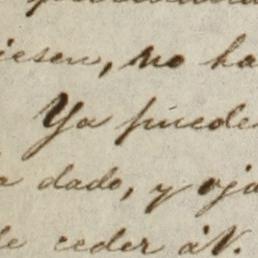 iesen, no ha
Ya puede
o dado, y oja
le ceder á V.